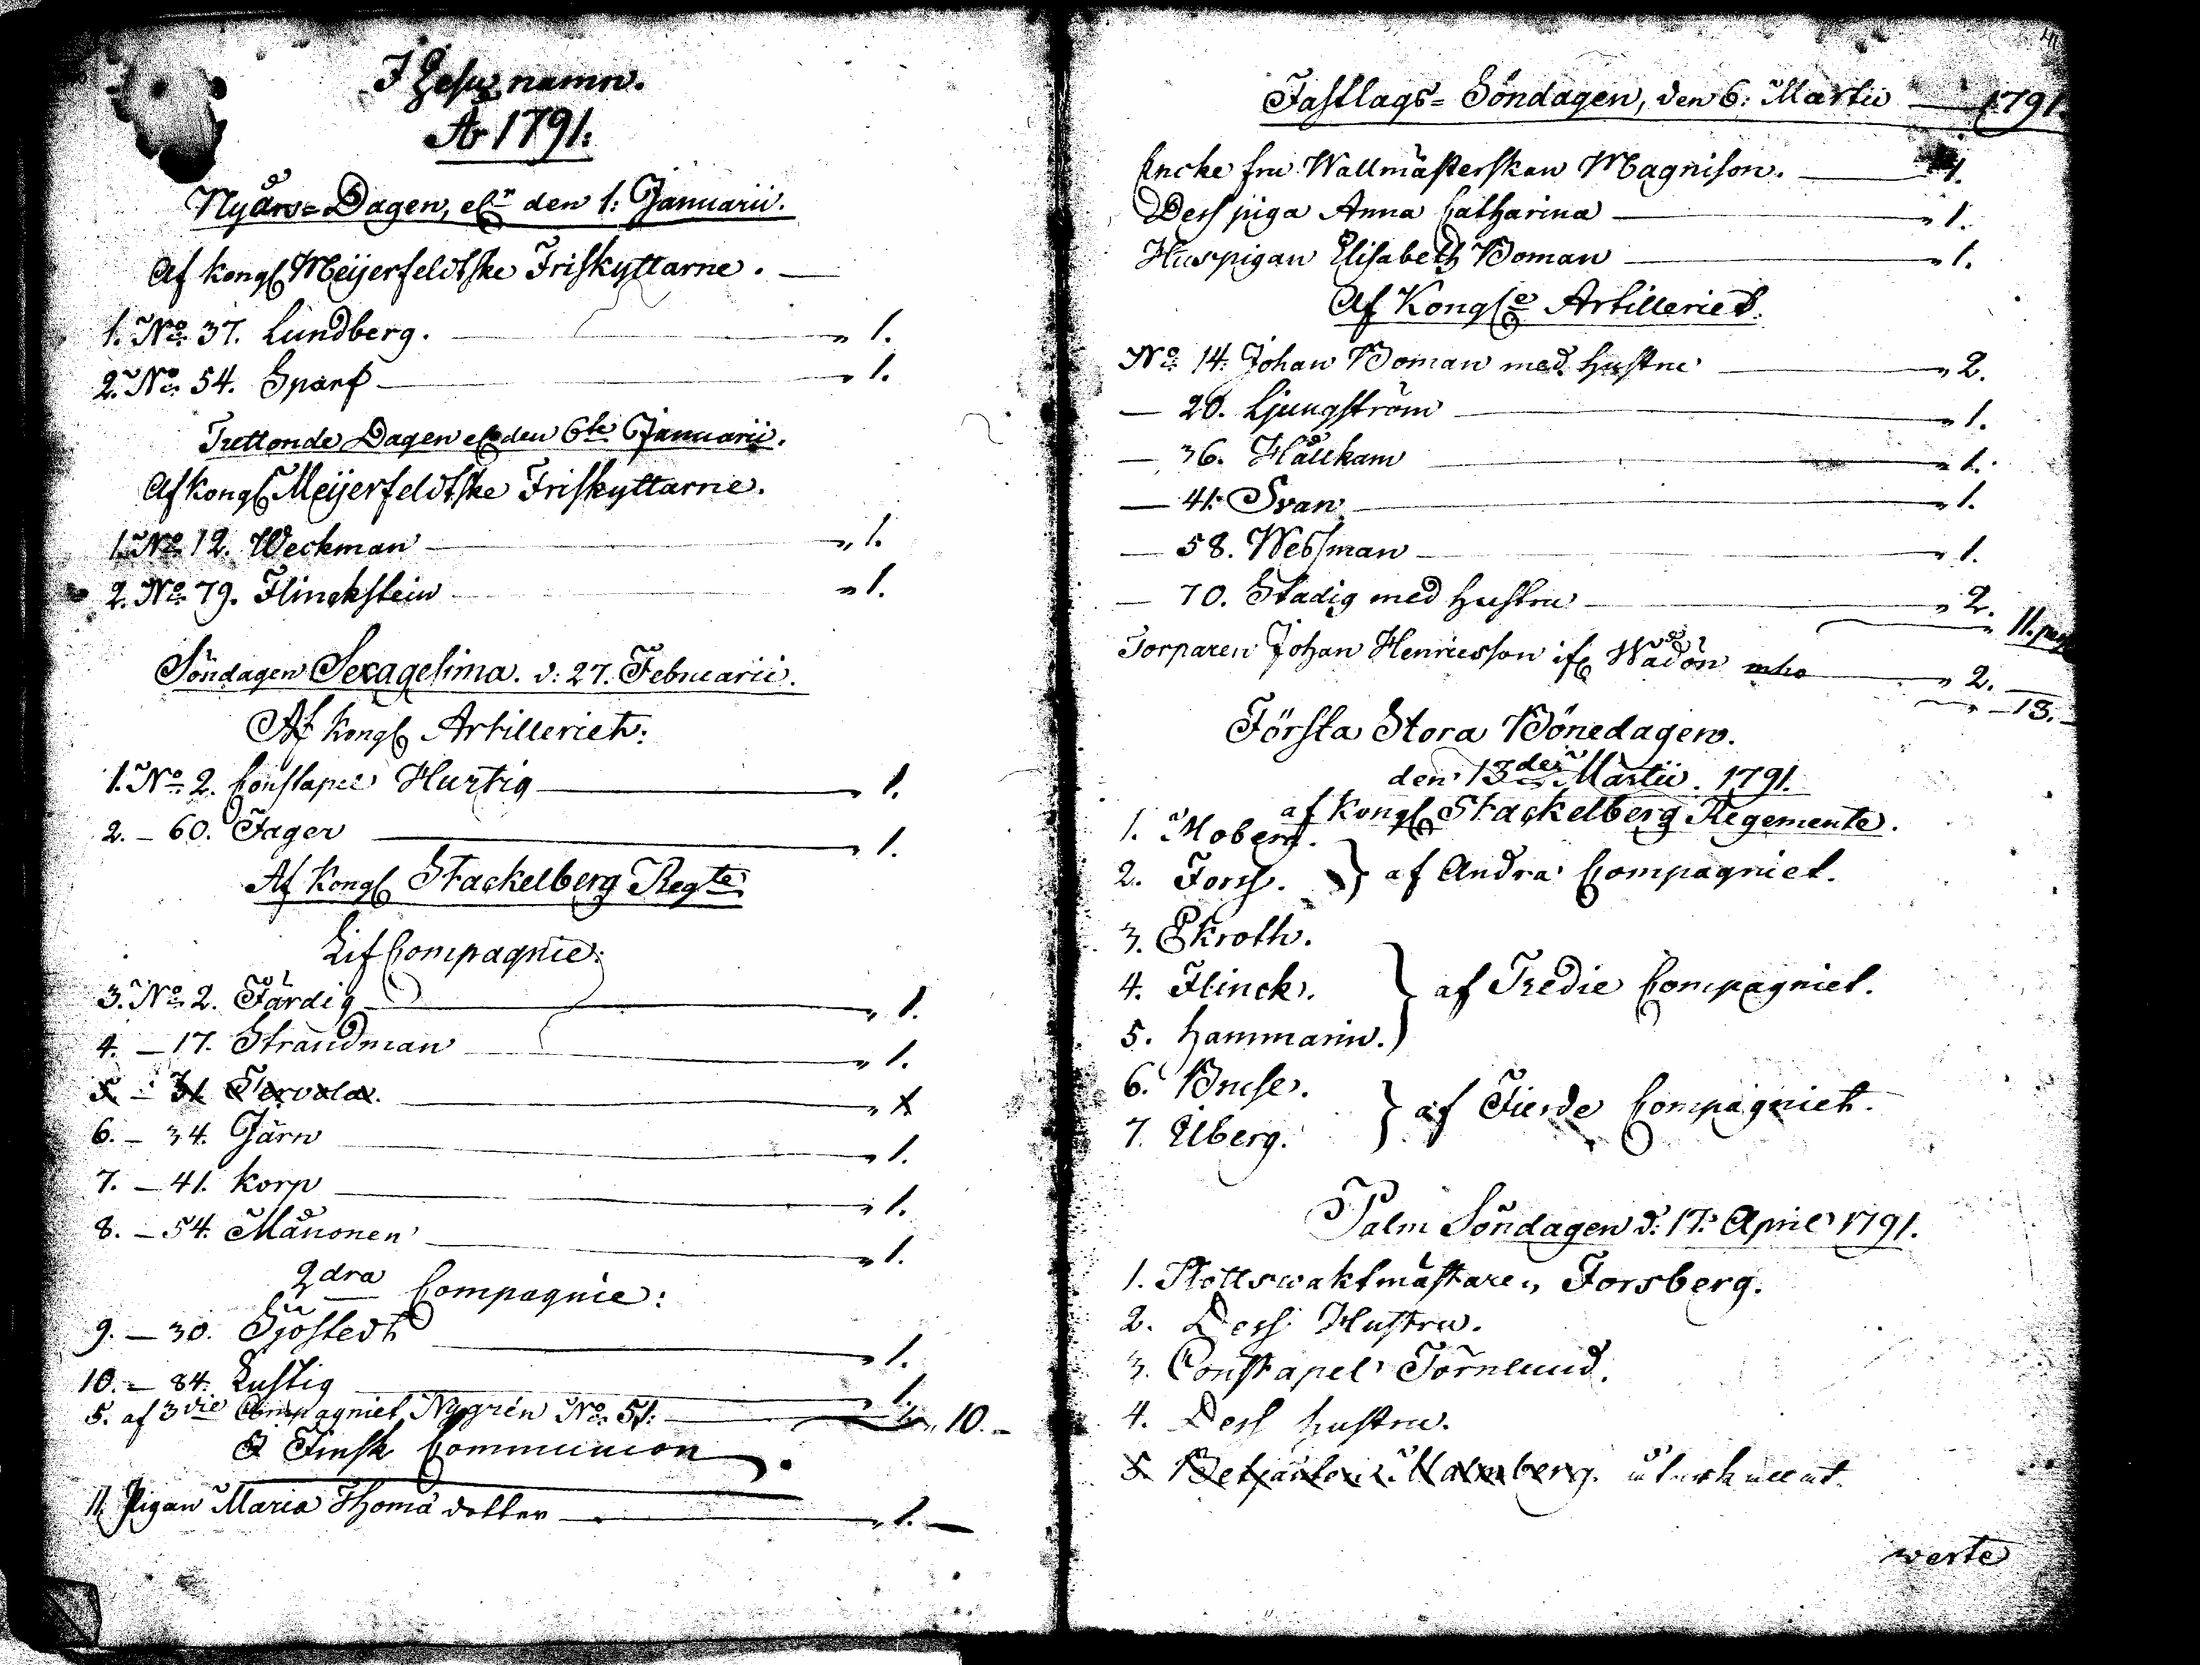 I Jesu namn.
År 1791:
Nyårs=Dagen, elr den 1: Januarii.
Af kongl Meijerfeldtske Friskyttarne.
1. No 37. Lundberg. — " 1.
2. No 54. Sparf — " 1.
Trettonde Dagen el den 6te Januarii.
Af Kongl Meijerfeldtske Friskyttarne.
1. No 12. Weckman — " 1.
2. No 79. Flinckstein — " 1.
Söndagen Sexagesima. d: 27. Februarii.
Af Kongl Artilleriet:
1. No 2. Constapel Hurtig — " 1.
2. — 60. Jager — " 1.
Af Kongl Stackelberg Regte
Lif Compagnie:
3. No 2. Färdig — " 1.
4. — 17. Strandman — " 1.
5. — 31 Tervola. — " 1
6. — 34. Järn — " 1.
7. — 41. Korp — " 1.
8. — 54. Månonen — " 1.
2dra Compagnie:
9. — 30. Sjöstedt — " 1.
10. — 84. Lustig — 1.
5. af 3die Compagniet Nygrén No 51. — 1. " 10. —
Finsk Communion
11. Pigan Maria Thomä dotter — " 1. —
Fastlags= Söndagen, den 6: Martii — 1791.
Encke fru Wallmästerskan Magnison. — 1.
Dess piga Anna Catharina — " 1.
Huspigan Elisabeth Boman — " 1.
Af Kongl Artilleriet.
No 14. Johan Boman med hustru — " 2.
— 20. Ljungström — " 1.
— 36. Hållkam — " 1.
— 41. Svan — " 1.
— 58. Wessman — " 1.
— 70. Stadig med hustru — " 2.
" 11. pers
Torparen Johan Henricsson ifr Wådön mho — " 2. —
" — 13. —
Första Stora Bönedagen.
den 13de Martii. 1791.
af Kongl Stackelberg Regemente.
1. Moberg.
2. Forss. } af Andra Compagniet.
3. Ekroth.
4. Flinck. } af Tredie Compagniet.
5. Hammarin.
6. Bruse. } af Fierde Compagniet.
7. Ulberg.
Palm Söndagen d: 17: April 1791.
1. Slottswaktmästaren Forsberg.
2. Dess Hustru.
3. Constapel Törnlund.
4. Dess hustru.
5 Betjänten Malmberg.
werte